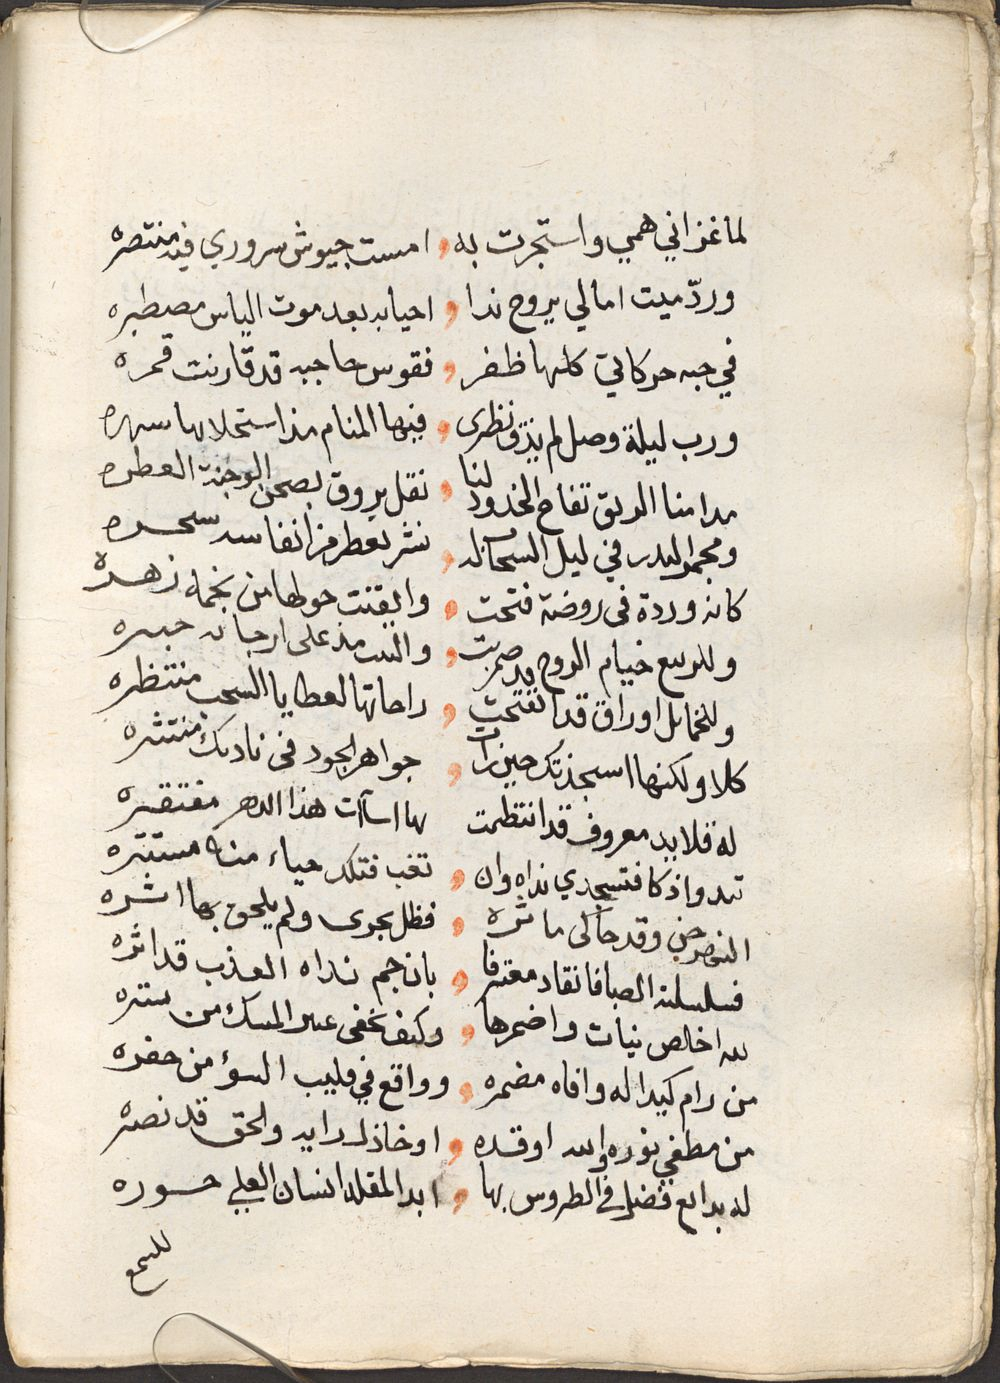 لما غزاني همي واستجرت به ، امست جيوش سروري فيه منتصره
وردّ ميت امالي بروح ندا ، احيا به بعد موت الياس مصطبره
في حبه حركاتي كلها ظفر ، فقوس حاجبه قد قارنت قمره
ورب ليلة وصل لم يذق نظرى ، فيها المنام مذ استحلا بها سهره
مدامنا الريق تفاح الخدود لنا ، نقل يروق بصحن الوجنة العطره
ومجمر البدر في ليل السما له ، نشر يعطر من انفاسه سحره
كانه وردة فى روضة فتحت ، وايقنت حولها من نجمه زهره
وللربيع خيام الروح قد ضربت ، والنبت مد على ارجائه حبره
وللخمايل اوراق قد انفتحت ، راحاتها لعطايا السحب منتظره
كلا ولكنها استجدتك حين رات ، جواهر الجود فى ناديك منتثره
له قلايد معروف قد انتظمت بها اسآات هذا الدهر مفتقره
تبدو اذ كا فتستجدي نداه وان ، تغب فتلك حياء منه مستتره
النهر حين وقد حاكى ماثره ، فظل يجرى ولم يلحق بها اثره
فسلسلته الصبا فانقاد معترفا ، بان جم نداه العذب قد اثره
لله اخلص نيات واضمرها ، وكيف يخفى عبير المسك من ستره
من رام كيدا له وافاه مضمره ، وواقع في قليب السوء من حفره
من مطفي نوره والله اوقده ، او خاذل رايه والحق قد نصره
له بدائع فضل في الطروس بها ، ابدا لمقلة انسان العلي حوره
للسمع